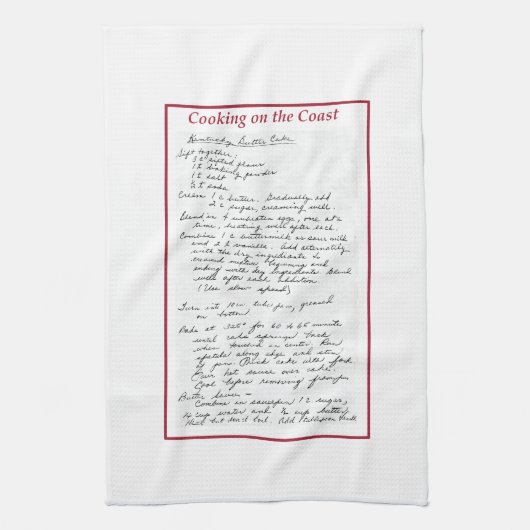 Cooking on the Coast
Kentucky Butter Cake
Sift together:
3 c sifted flour
1 t baking powder
1 t salt
½ t soda
Cream 1 c butter. Gradually add
2 c sugar, creaming well.
Blend in 4 unbeaten eggs, one at a
time, beating well after each.
Combine 1 c buttermilk or sour milk
and 2 t vanilla. Add alternately
with the dry ingredients to
creamed mixture, beginning and
ending with dry ingredients. Blend
well after each addition
(Use slow speed)
Turn into 10 in. tube pan, greased
on bottom
Bake at 325° for 60 to 65 minutes
until cake springs back
when touched in center. Run
spatula along edge and stem
of pan. Prick cake with fork
Pour hot sauce over cake.
Cool before removing from pan
Butter Sauce -
Combine in saucepan 1 c sugar,
¼ cup water and ½ cup butter.
Heat but don't boil. Add